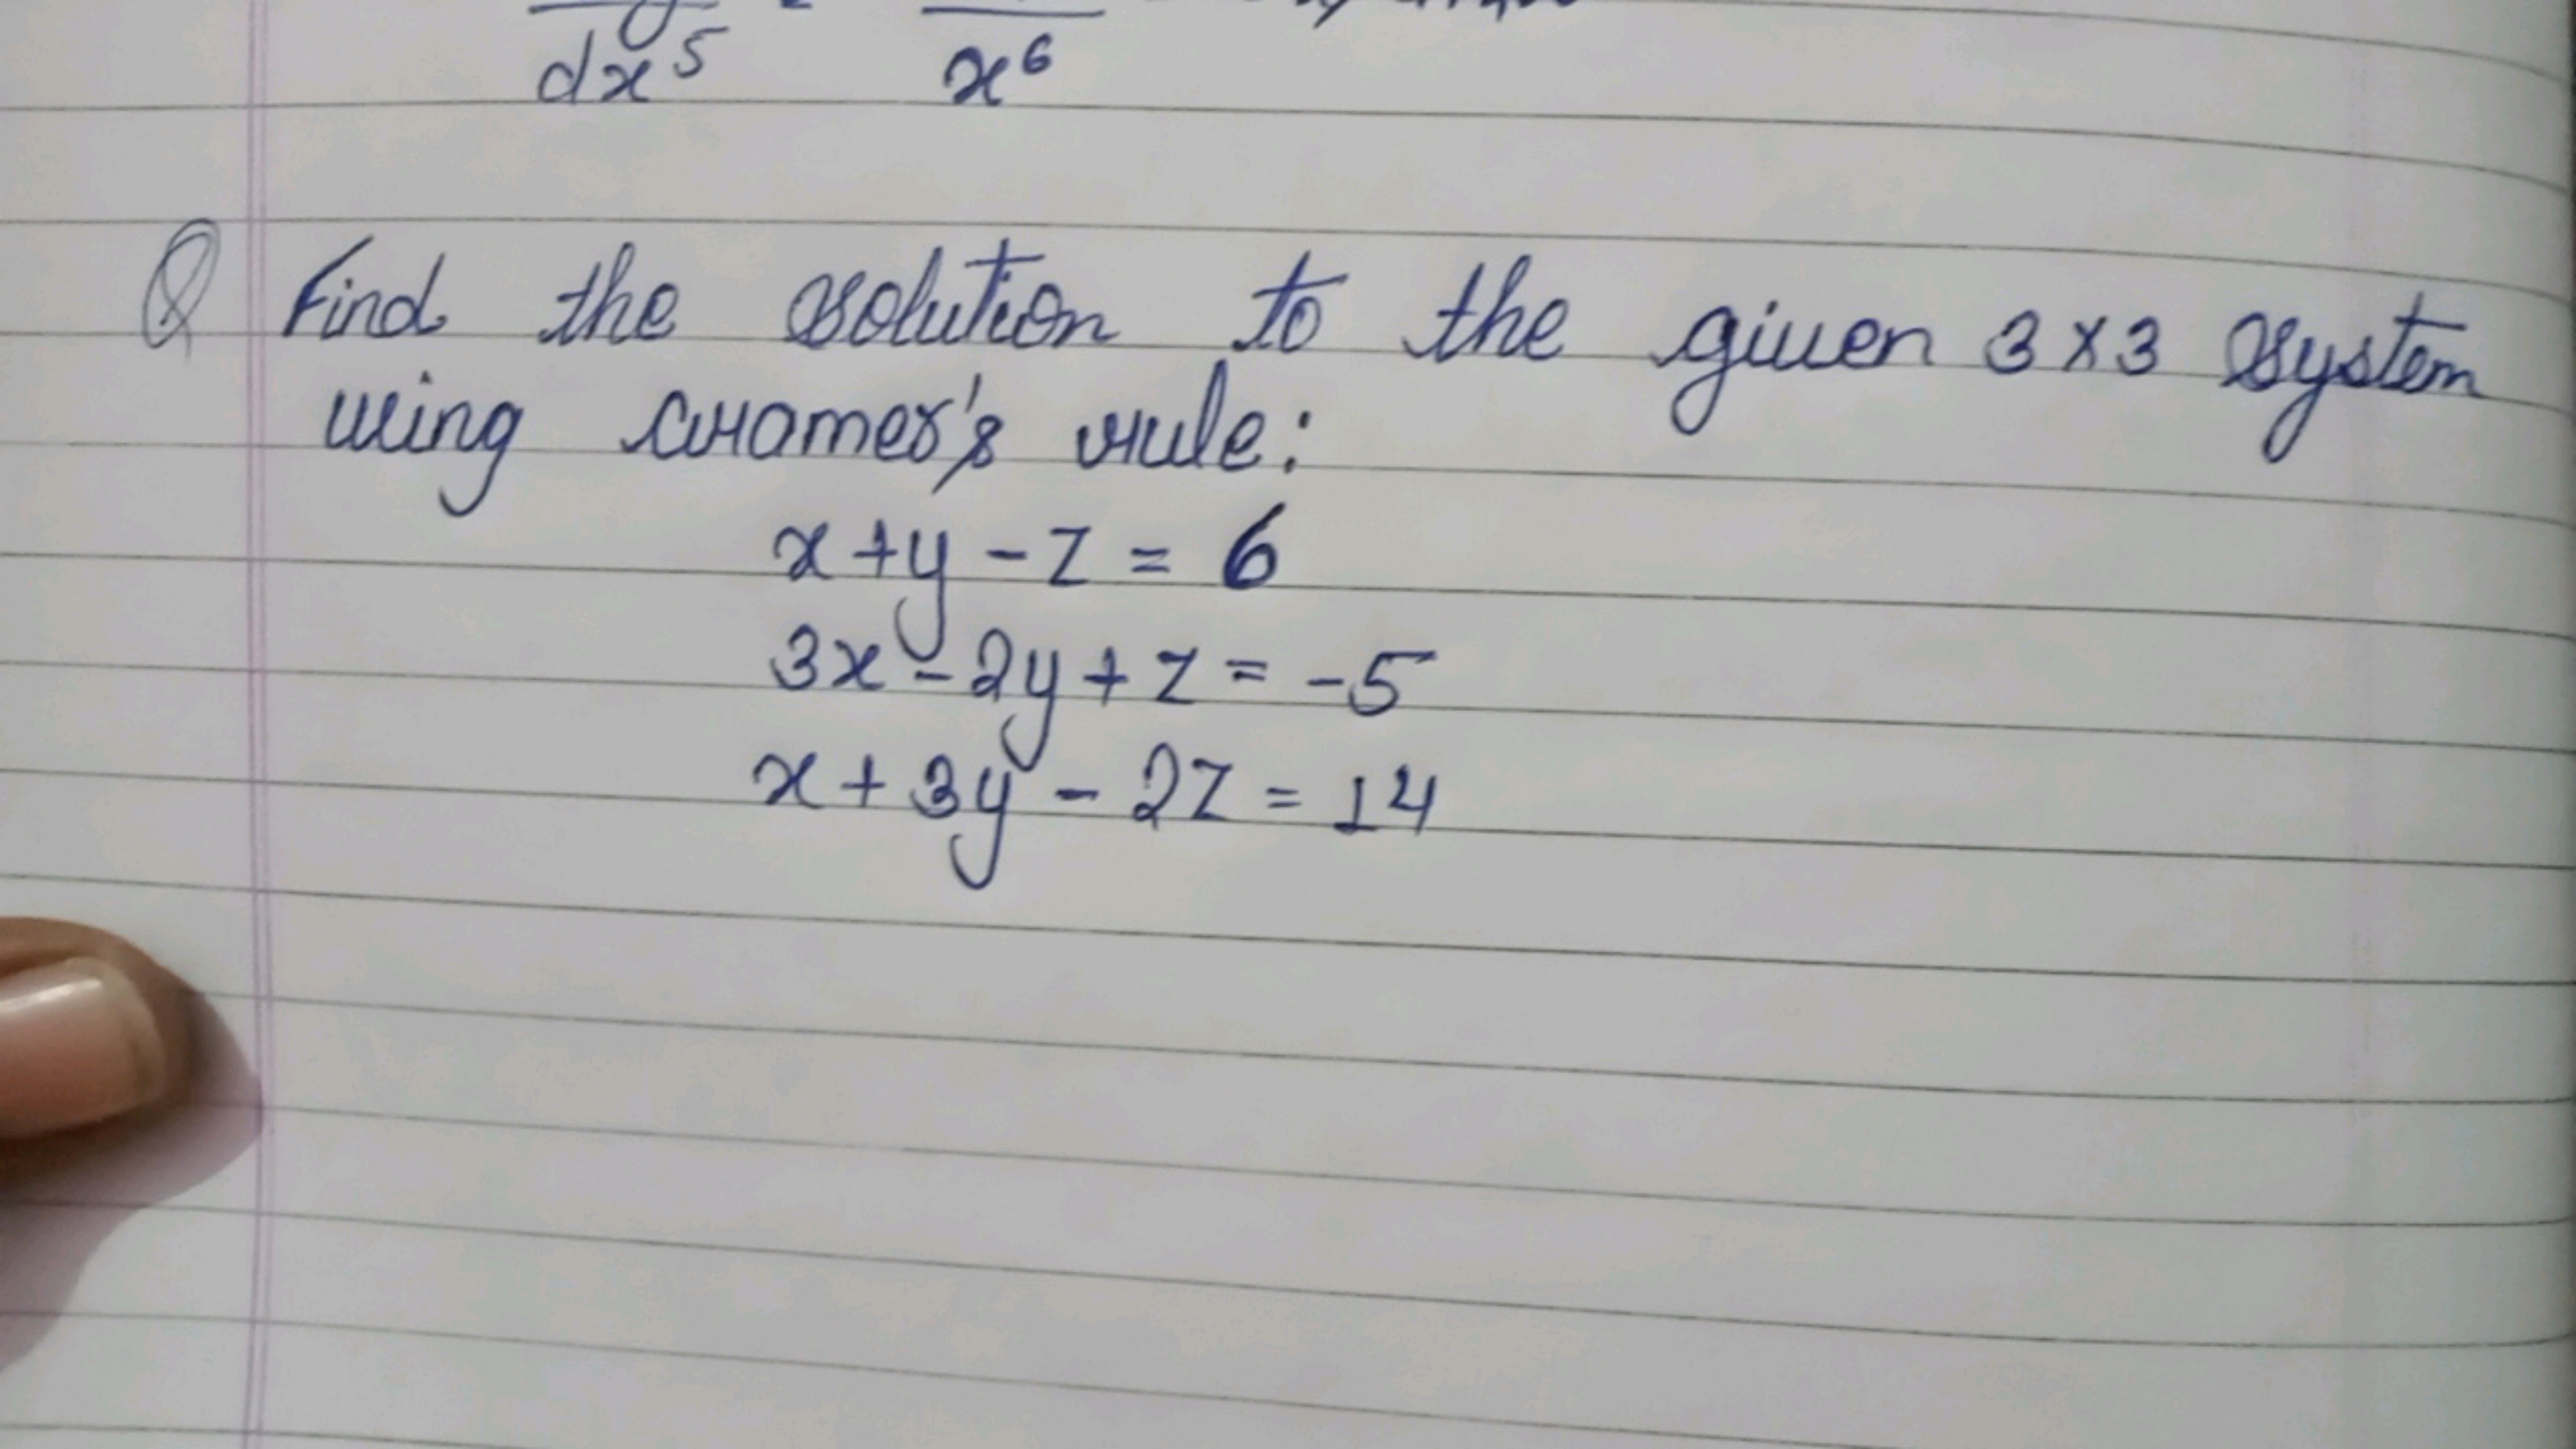 dx⁵ x⁶
Q Find the solution to the given 3×3 system
using cramer's rule:
x+y-z = 6
3x-2y+z = -5
x+3y-2z = 14